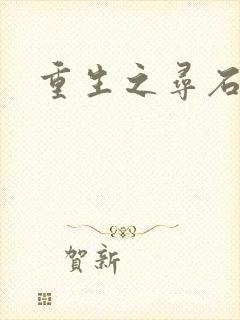 重生之尋石
賀新